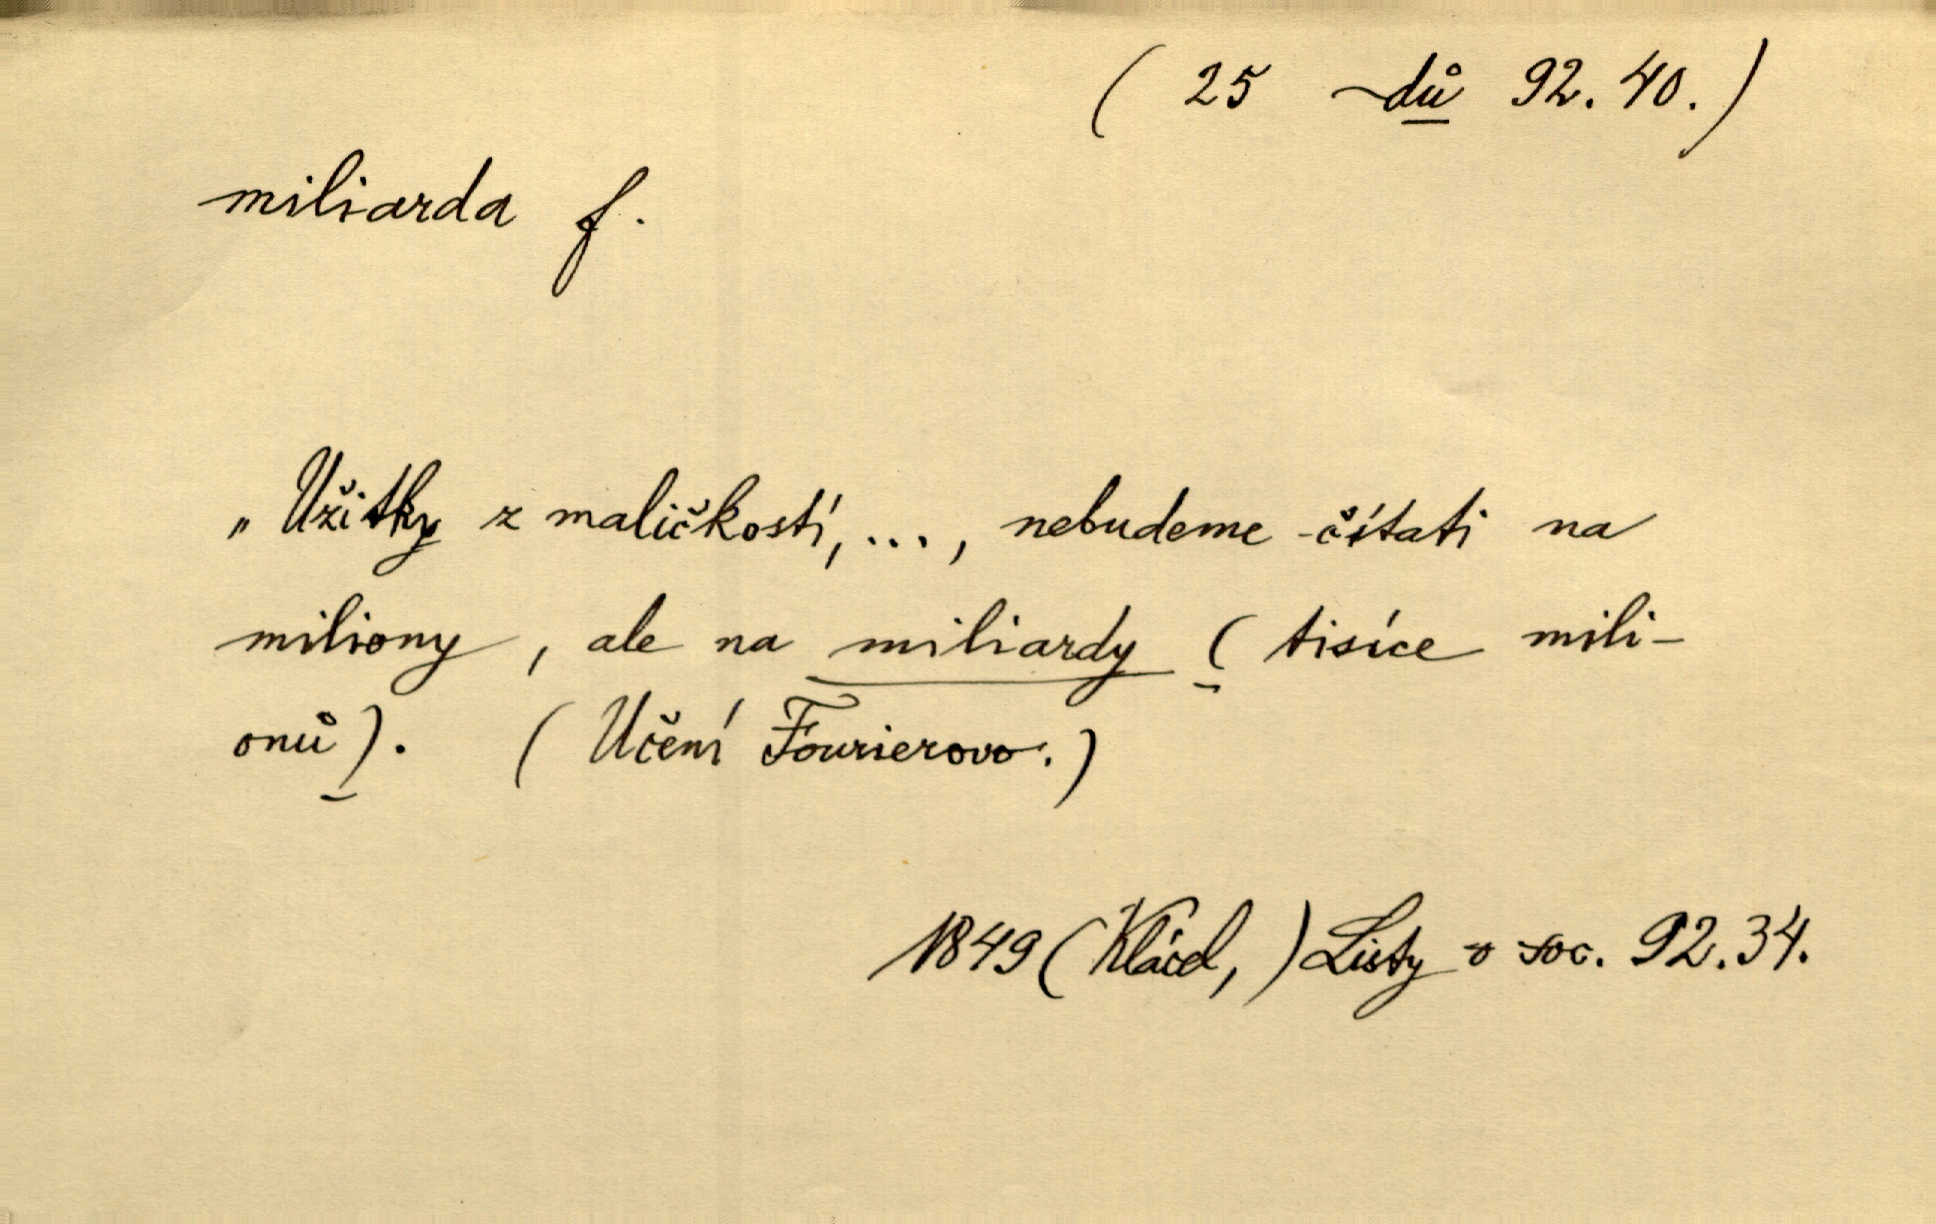 ( 25 ~dů 92. 40. )
miliarda f.
„Užitky z maličkostí, ..., nebudeme čítati na
miliony, ale na miliardy ( tisíce mili-
onů). ( Učení Fourierovo. )
1849 ( Klácel, ) Listy o soc. 92. 34.